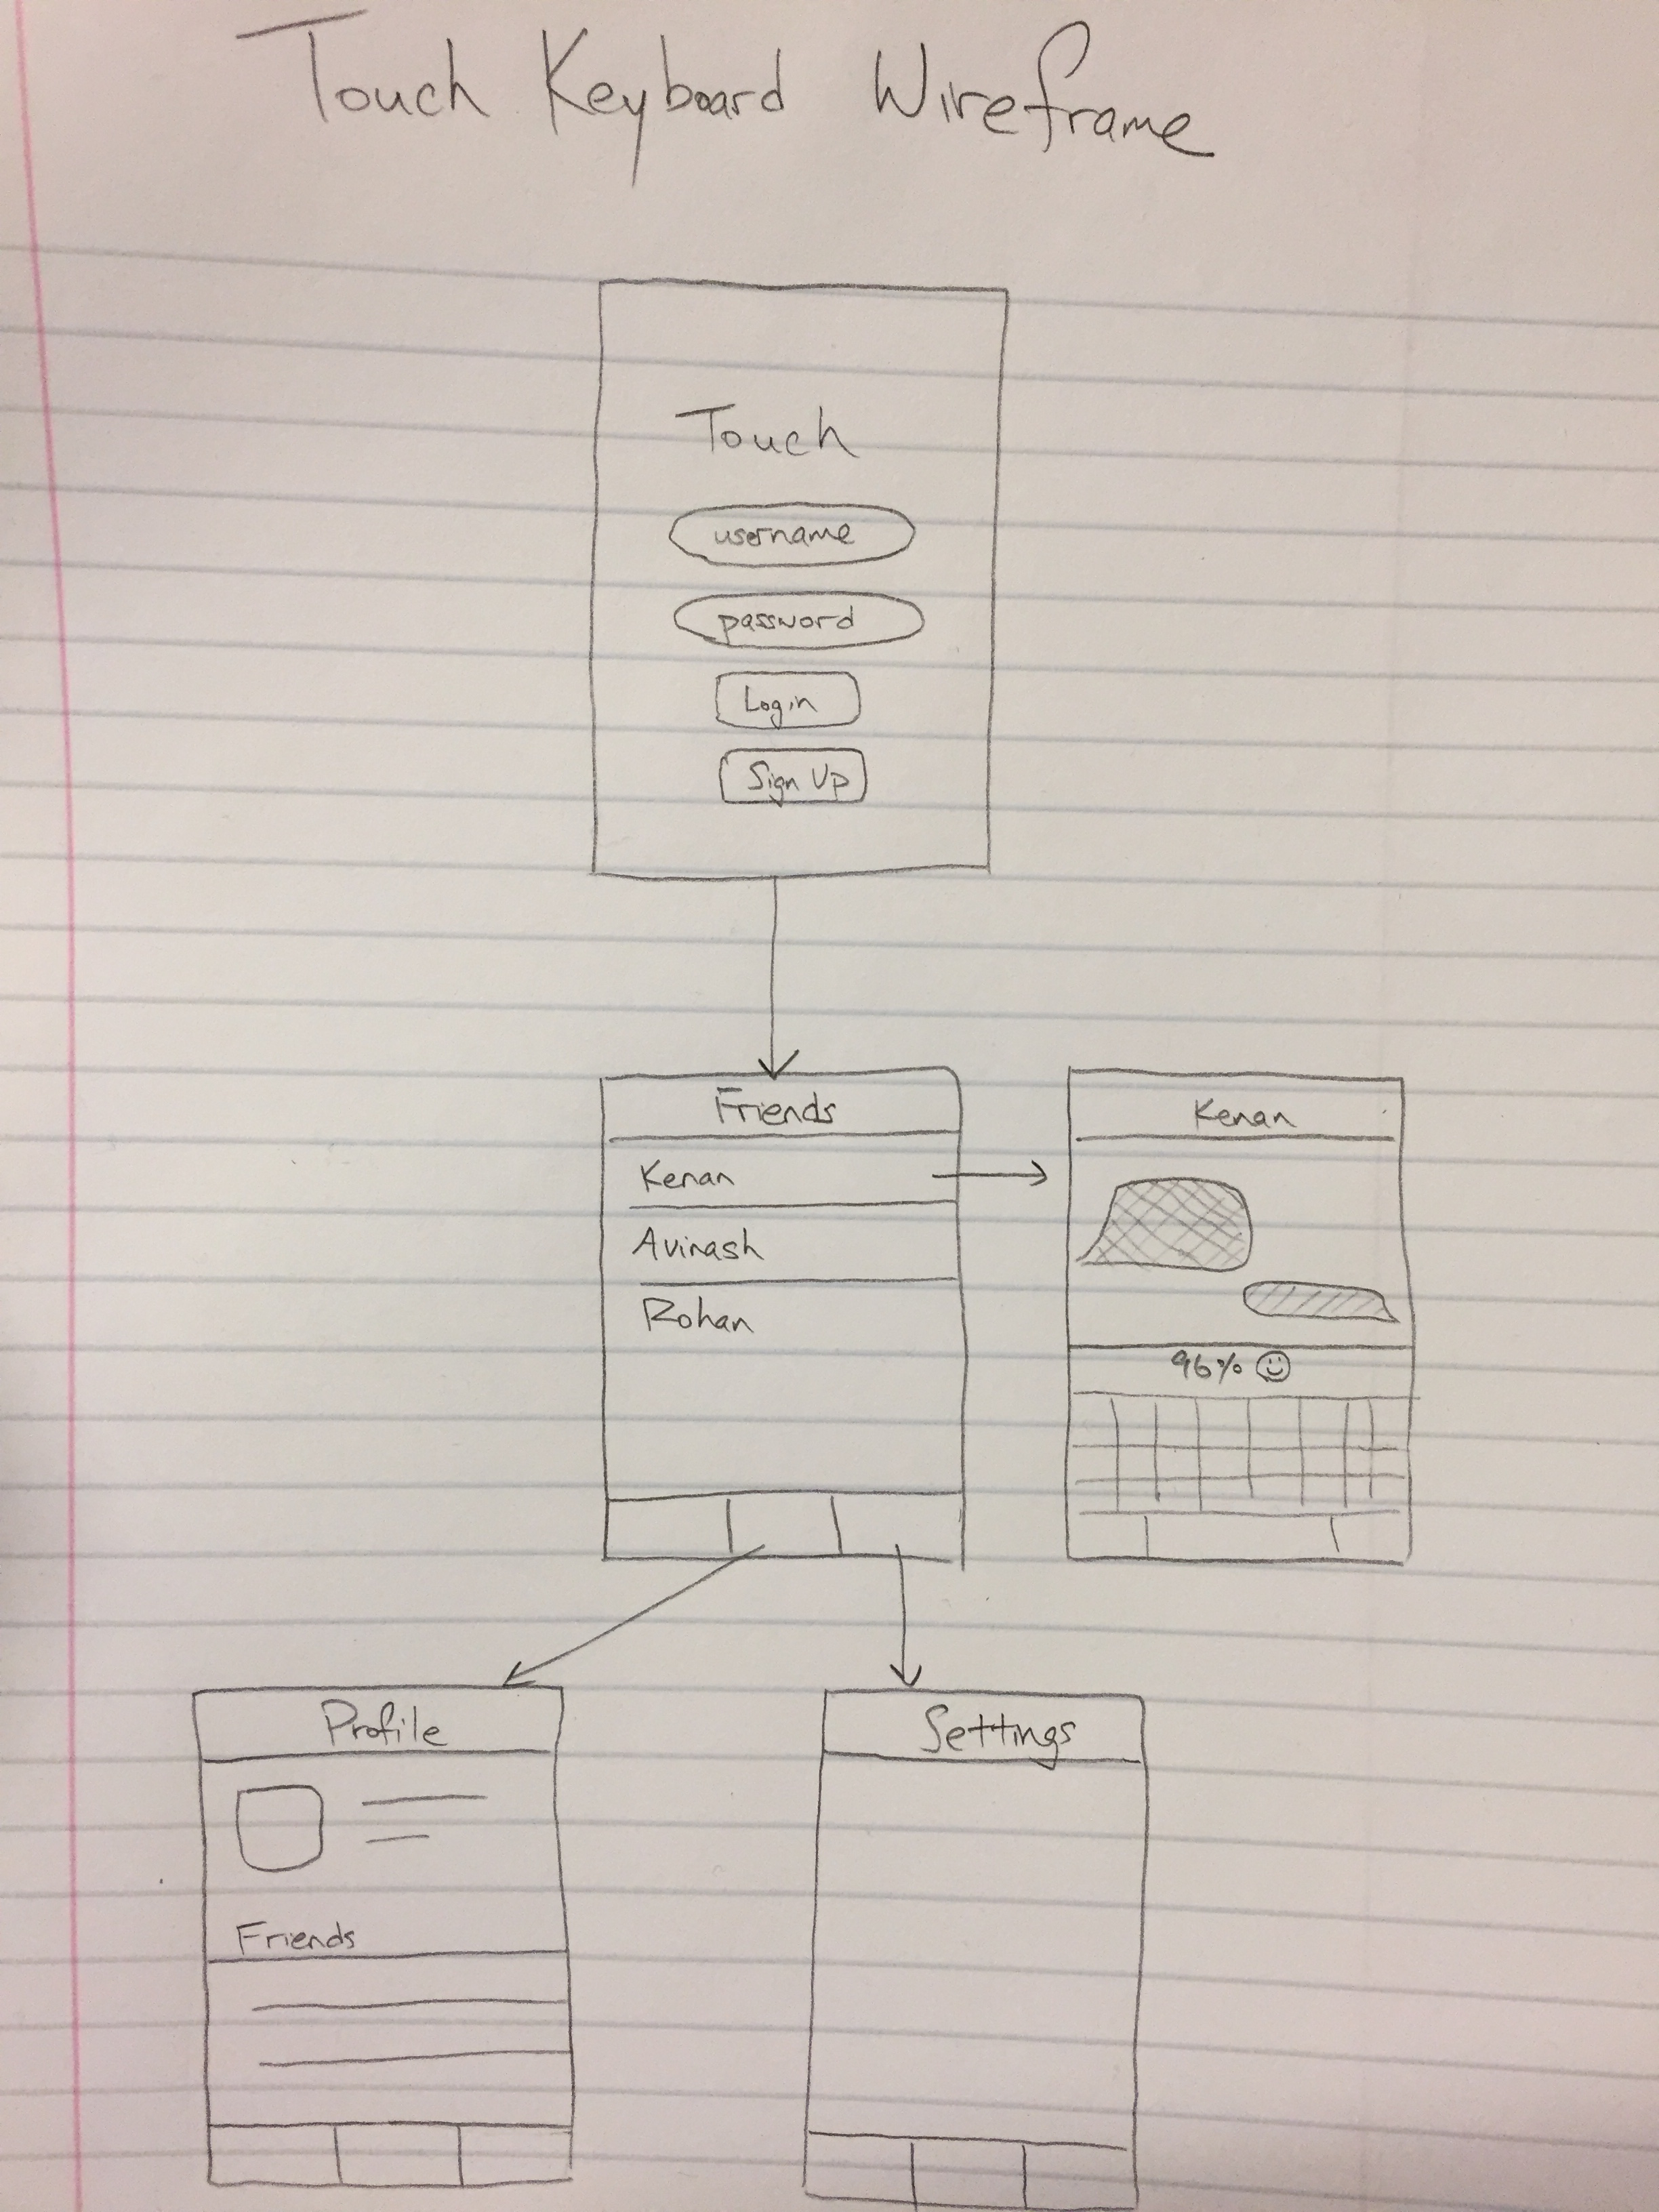 Touch Keyboard Wireframe
Touch
username
password
Login
Sign Up
Friends
Kenan
Avinash
Rohan
Kenan
96% ☺
Profile
Friends
Settings